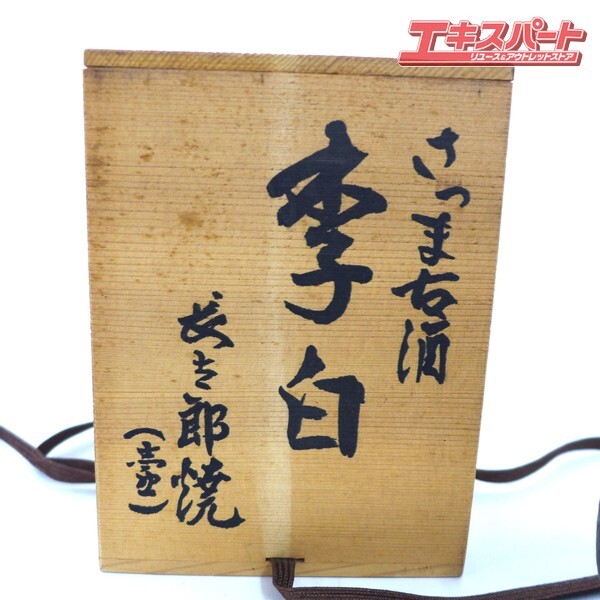 エキスパート
リユース&アウトレットストア
さつま古酒
李白
長太郎焼
(壷)